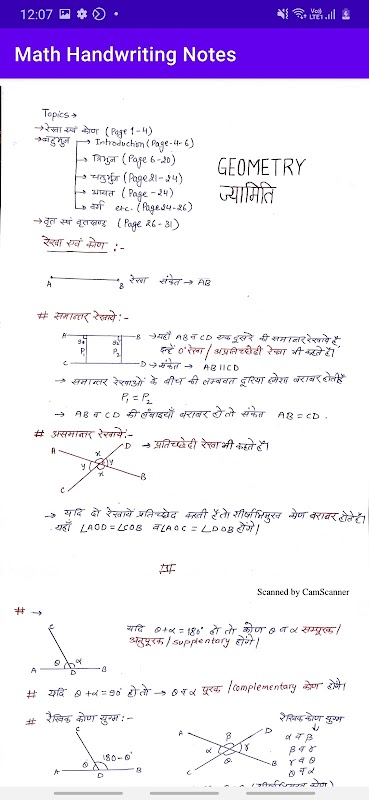 12:07
Math Handwriting Notes
Topics →
→ रेखा एवं कोण (Page 1-4)
→ बहुभुज → Introduction (Page-4-6)
→ त्रिभुज (Page 6-20)
→ चतुर्भुज (Page 21-24)
→ आयत (Page -24)
→ वर्ग etc. (Page 24-26)
→ वृत एवं वृतखण्ड (Page 26-31)
GEOMETRY
ज्यामिति
रेखा एवं कोण :-
A B रेखा संकेत → AB
# समान्तर रेखायें :-
A B → यहाँ AB व CD एक दूसरे की समान्तर रेखायें हैं,
90° 90° इन्हें 0° रेखा / अप्रतिच्छेदी रेखा भी कहते हैं।
P₁ P₂
C D → संकेत → AB || CD
→ समान्तर रेखाओं के बीच की लम्बवत दूरियां हमेशा बराबर होती हैं
P₁ = P₂
→ AB व CD की लंबाइयाँ बराबर हो तो संकेत AB = CD.
# असमान्तर रेखायें :-
A D → प्रतिच्छेदी रेखा भी कहते हैं।
x
y y
x
C B
→ यदि दो रेखायें प्रतिच्छेद करती हैं तो शीर्षाभिमुख कोण बराबर होते हैं।
यहाँ ∠AOD = ∠COB व ∠AOC = ∠DOB होंगे।
Scanned by CamScanner
# →
C
θ α
A D B
यदि θ+α = 180° हो तो कोण θ व α सम्पूरक /
अनुपूरक / supplementary होंगे।
# यदि θ+α = 90° हो तो → θ व α पूरक / complementary कोण होंगे।
# रैखिक कोण युग्म :-
C
θ 180-θ
A D B
A D
β
α γ
θ
C B
रैखिक कोण युग्म
α व β
β व γ
γ व θ
θ व α